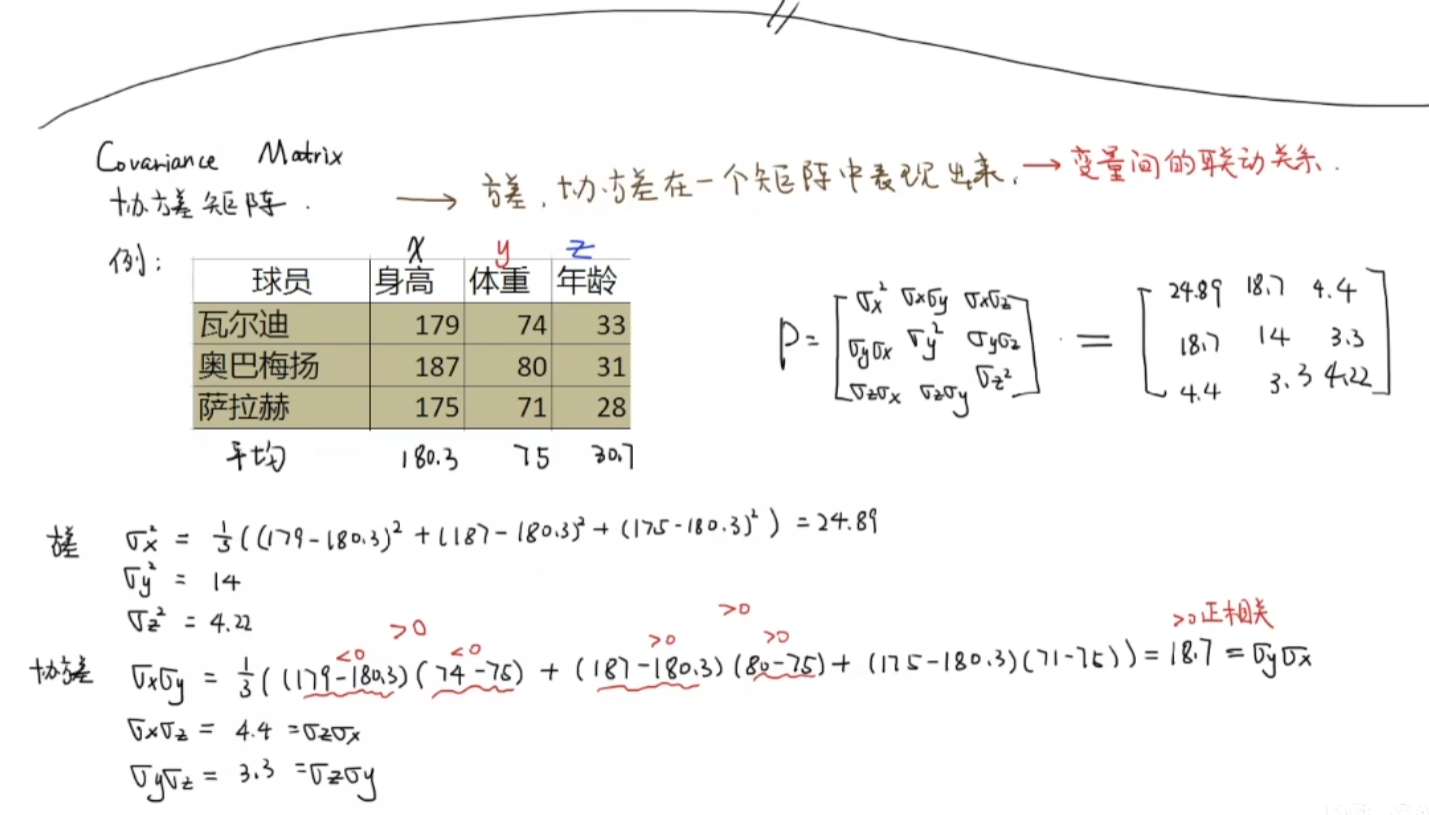 Covariance Matrix
协方差矩阵. → 方差, 协方差在一个矩阵中表现出来. → 变量间的联动关系.
例:
x y z
球员 身高 体重 年龄
瓦尔迪 179 74 33
奥巴梅扬 187 80 31
萨拉赫 175 71 28
平均 180.3 75 30.7
P = [σx² σxσy σxσz
σyσx σy² σyσz
σzσx σzσy σz²]
= [24.89 18.7 4.4
18.7 14 3.3
4.4 3.3 4.22]
方差 σx² = 1/3((179-180.3)² + (187-180.3)² + (175-180.3)²) = 24.89
σy² = 14
σz² = 4.22
>0 >0 >0正相关
<0 <0 >0 >0
协方差 σxσy = 1/3((179-180.3)(74-75) + (187-180.3)(80-75) + (175-180.3)(71-75)) = 18.7 = σyσx
σxσz = 4.4 = σzσx
σyσz = 3.3 = σzσy